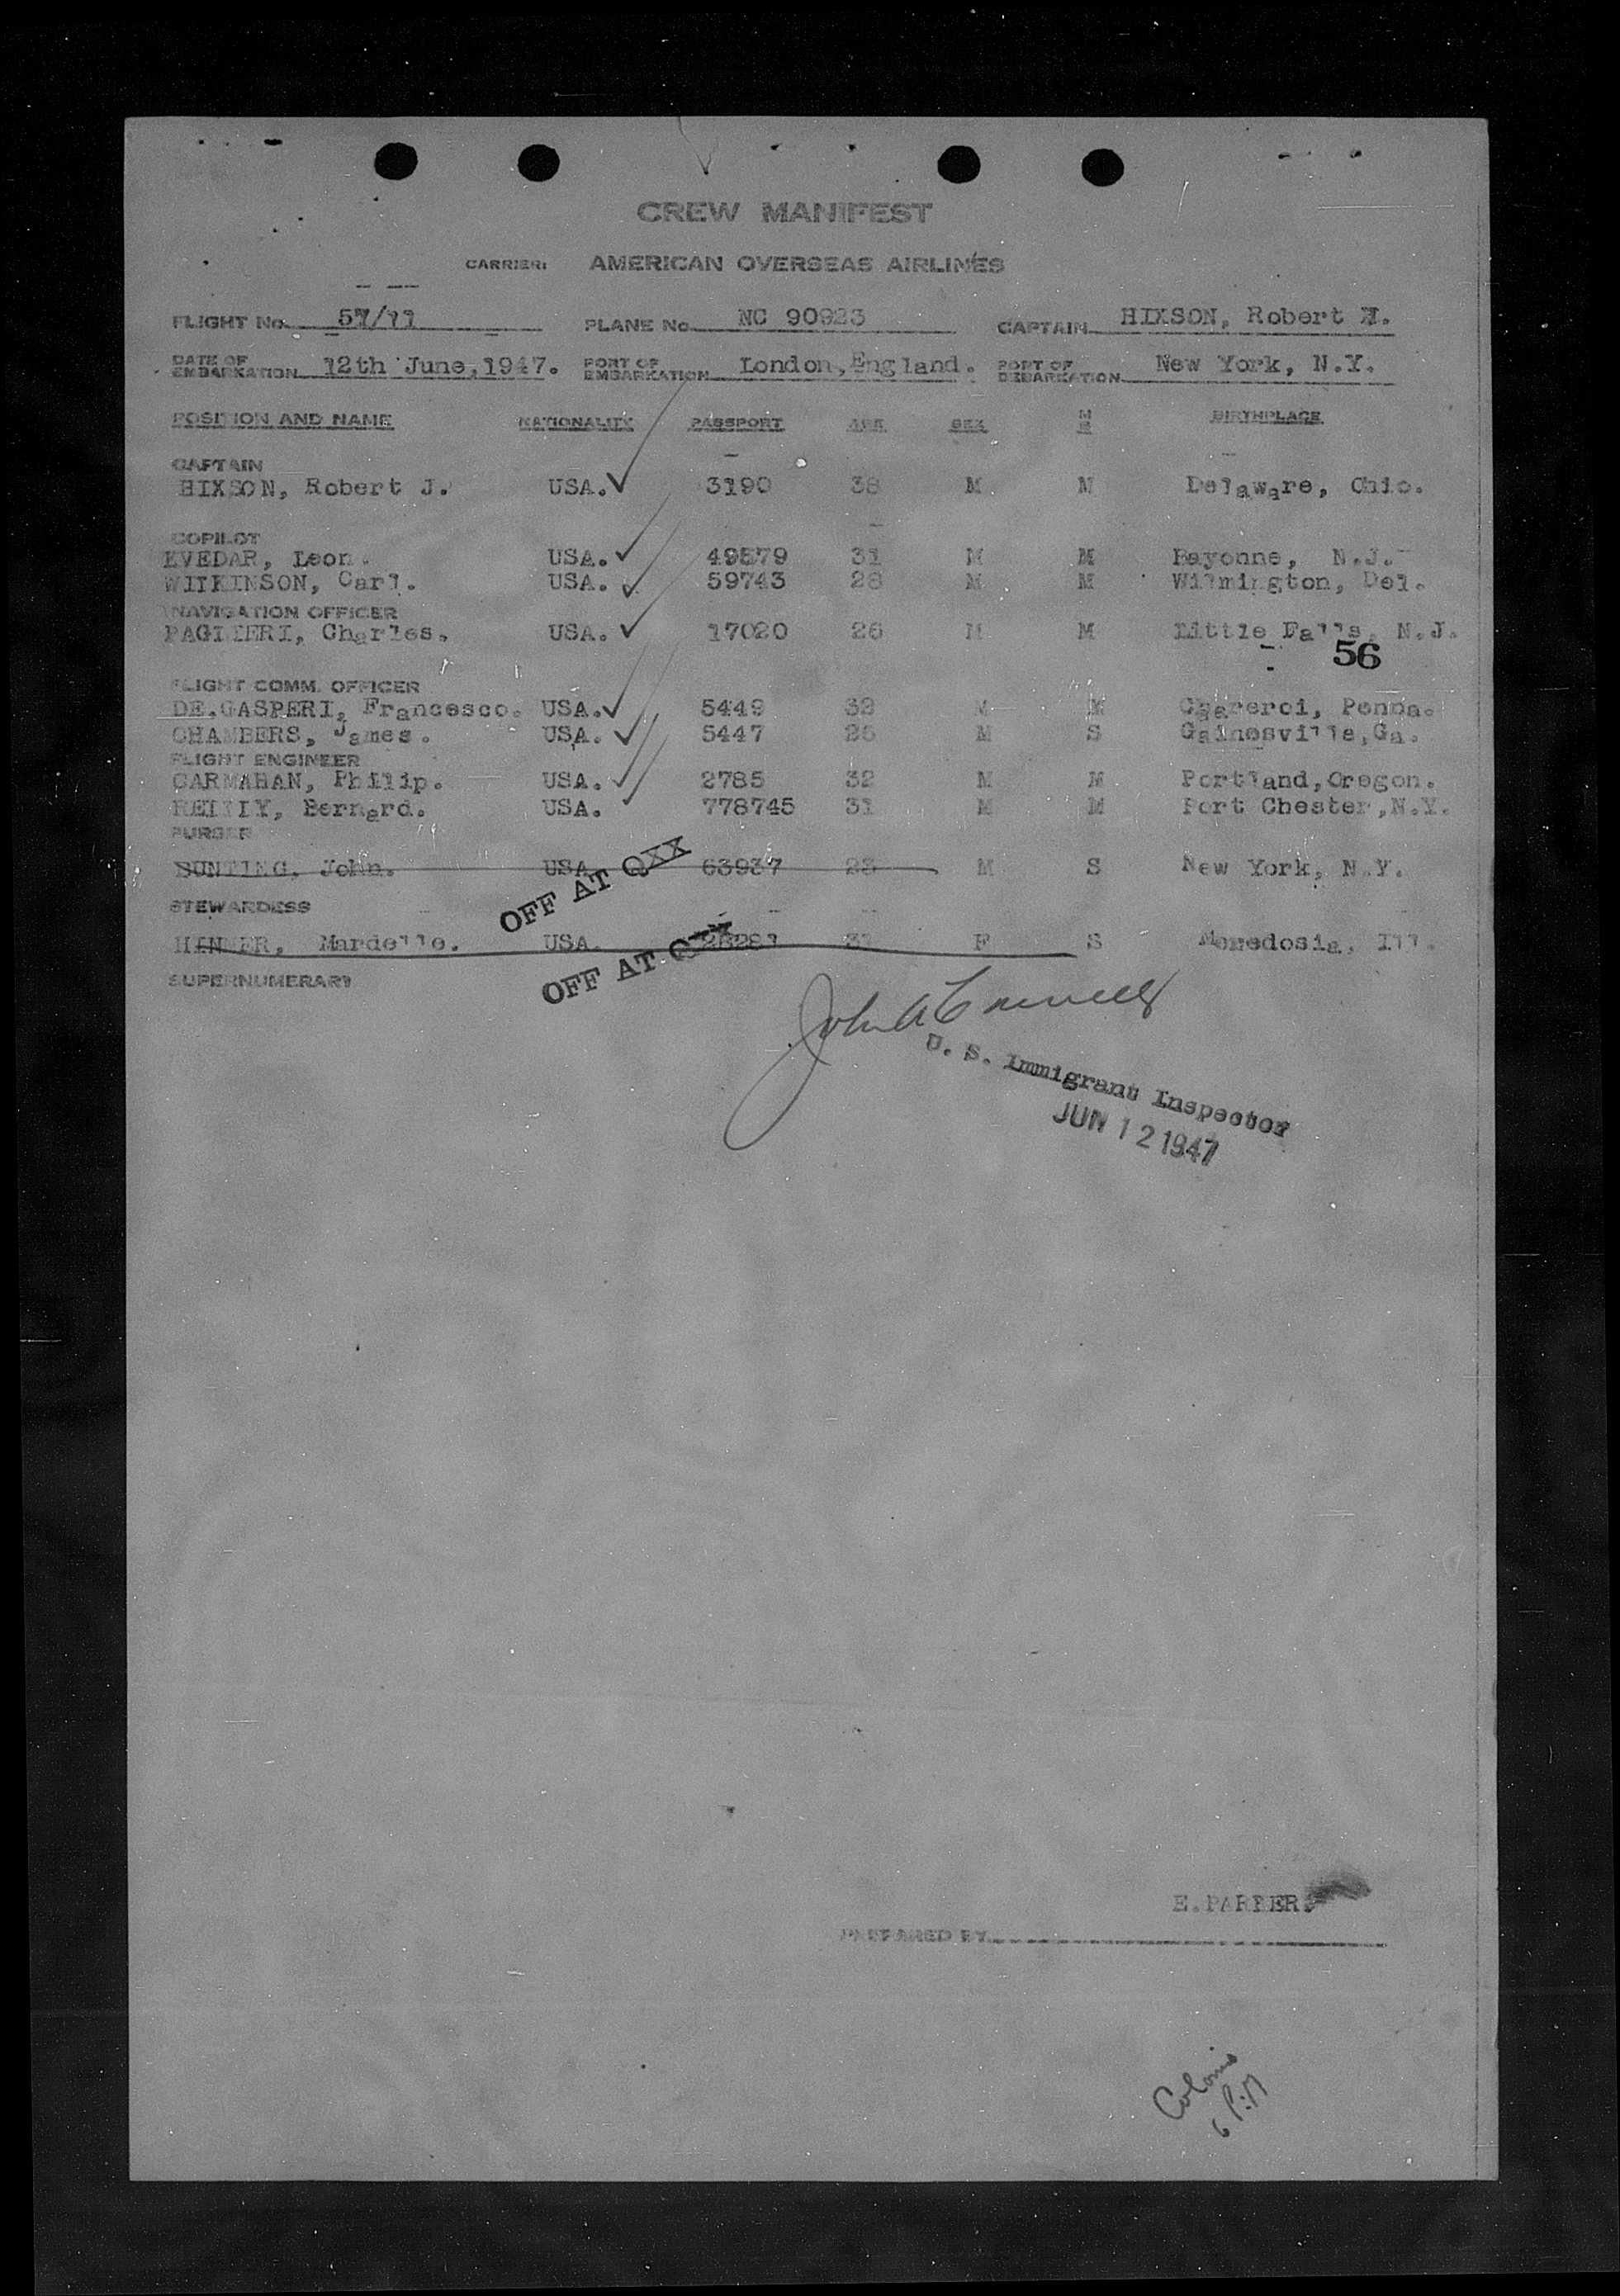 CREW MANIFEST
CARRIER: AMERICAN OVERSEAS AIRLINES
FLIGHT No. 57/11 PLANE No. NC 90923 CAPTAIN HIXSON, Robert J.
DATE OF EMBARKATION 12th June, 1947. PORT OF EMBARKATION London, England. PORT OF DEBARKATION New York, N.Y.
POSITION AND NAME NATIONALITY PASSPORT AGE SEX M S BIRTHPLACE
CAPTAIN
HIXSON, Robert J. USA. 3190 38 M M Delaware, Ohio.
COPILOT
KVEDAR, Leon. USA. 49579 31 M M Bayonne, N.J.
WILKINSON, Carl. USA. 59743 28 M M Wilmington, Del.
NAVIGATION OFFICER
PAGLIERI, Charles. USA. 17020 26 M M Little Falls, N.J.
56
FLIGHT COMM. OFFICER
DE.GASPERI, Francesco. USA. 5449 32 M M Penna.
CHAMBERS, James. USA. 5447 25 M S Gainesville, Ga.
FLIGHT ENGINEER
CARMAHAN, Philip. USA. 2785 32 M M Portland, Oregon.
REILLY, Bernard. USA. 778745 31 M M Port Chester, N.Y.
PURSER
BUNTING, John. USA. 63937 23 M S New York, N.Y.
OFF AT QXX
STEWARDESS
HINNER, Mardelle. USA. 31 F S Meredosia, Ill.
OFF AT
SUPERNUMERARY
John A
U. S. Immigrant Inspector
JUN 12 1947
E. PARKER.
PREPARED BY
6 P.M